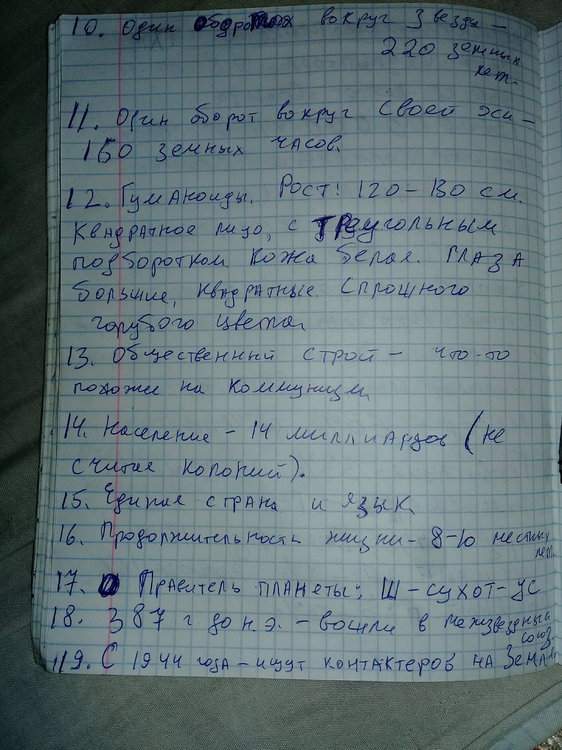 10. Один оборот вокруг звезды –
220 земных
лет.
11. Один оборот вокруг своей оси –
160 земных часов.
12. Гуманоиды. Рост: 120–130 см.
Квадратное лицо, с треугольным
подбородком. Кожа белая. Глаза
большие, квадратные сплошного
голубого цвета.
13. Общественный строй – что-то
похожее на коммунизм.
14. Население – 14 миллиардов (не
считая колоний).
15. Единая страна и язык.
16. Продолжительность жизни – 8–10 местных
лет.
17. Правитель планеты: Ш-сухот-ус
18. 387 г. до н.э. – вошли в межзвездный
союз.
19. С 1944 года – ищут контактеров на Земле